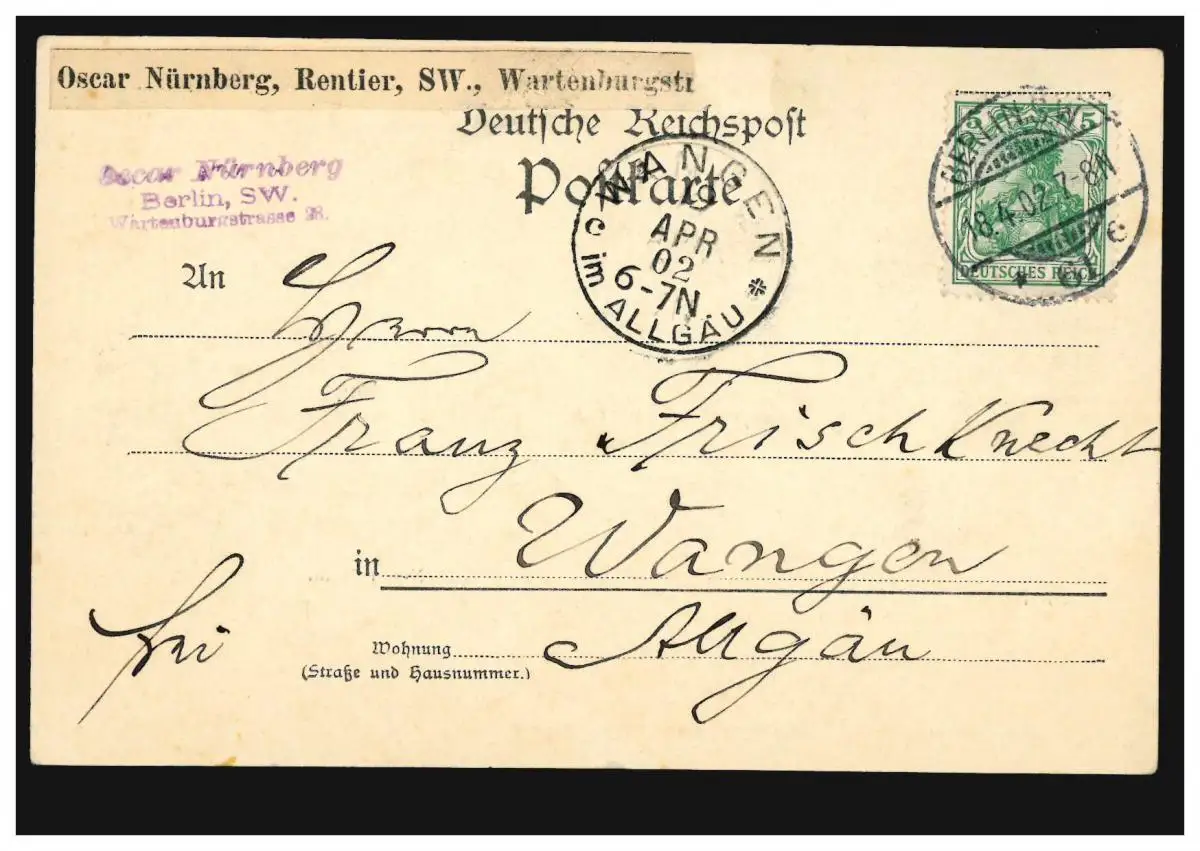 Oscar Nürnberg, Rentier, SW., Wartenburgstr
Deutsche Reichspost
Postkarte
Oscar Nürnberg
Berlin, SW.
Wartenburgstrasse 28.
WANGEN
APR
02
6-7N
C im ALLGÄU
BERLIN SW
18.4.02.7-8N
5
DEUTSCHES REICH
An Herrn
Franz FrischKnecht
in Wangen
Allgäu
frei
Wohnung
(Straße und Hausnummer.)